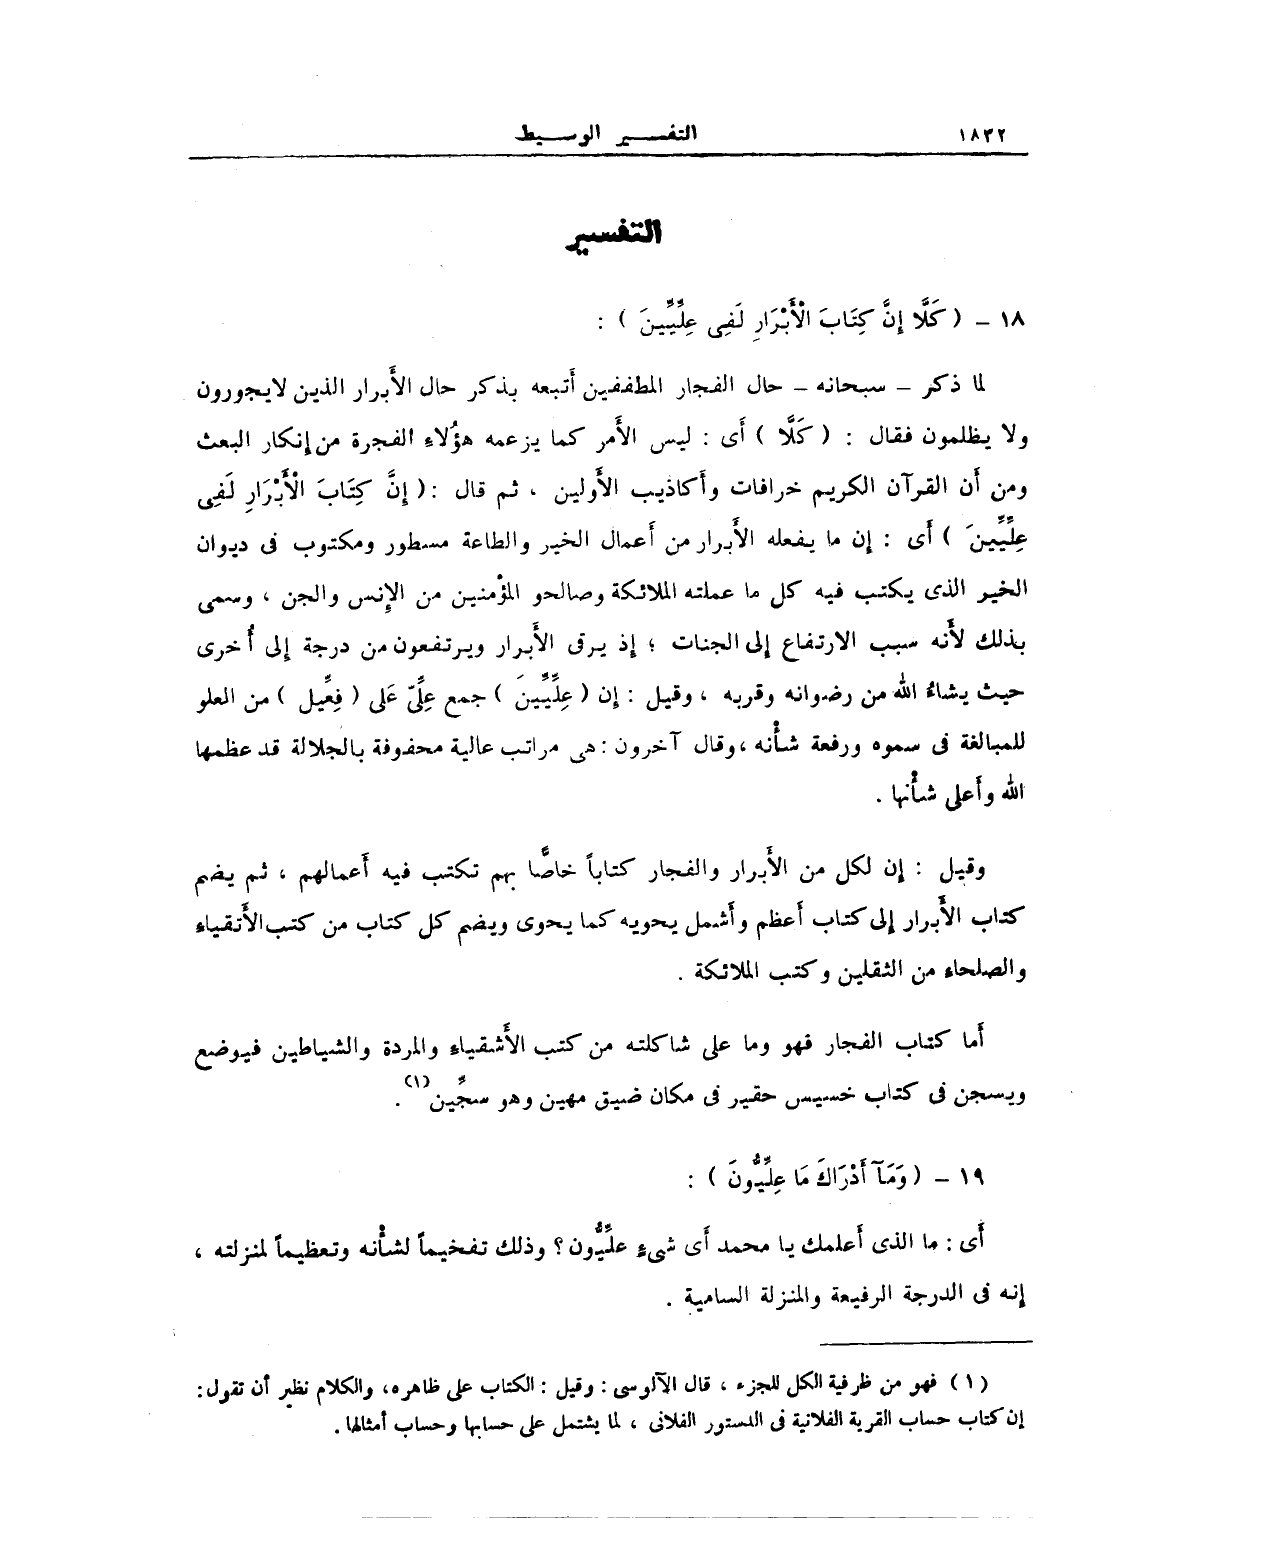 ١٨٣٢
التفسير الوسيط
التفسير
١٨ - ( كَلَّا إِنَّ كِتَابَ الْأَبْرَارِ لَفِى عِلِّيِّينَ ) :
لما ذكر - سبحانه - حال الفجار المطففين أَتبعه بذكر حال الأَبرار الذين لايجورون
ولا يظلمون فقال : ( كَلَّا ) أَى : ليس الأَمر كما يزعمه هؤُلاءِ الفجرة من إِنكار البعث
ومن أَن القرآن الكريم خرافات وأَكاذيب الأَولين ، ثم قال :( إِنَّ كِتَابَ الْأَبْرَارِ لَفِى
عِلِّيِّينَ ) أَى : إِن ما يفعله الأَبرار من أَعمال الخير والطاعة مسطور ومكتوب فى ديوان
الخير الذى يكتب فيه كل ما عملته الملائكة وصالحو المؤْمنين من الإِنس والجن ، وسمى
بذلك لأَنه سبب الارتفاع إِلى الجنات ؛ إِذ يرقى الأَبرار ويرتفعون من درجة إِلى أُخرى
حيث يشاءُ الله من رضوانه وقربه ، وقيل : إِن ( عِلِّيِّينَ ) جمع عِلِّىّ عَلى ( فِعِّيل ) من العلو
للمبالغة فى سموه ورفعة شأْنه ،وقال آخرون : هى مراتب عالية محفوفة بالجلالة قد عظمها
الله وأَعلى شأْنها .
وقيل : إِن لكل من الأَبرار والفجار كتاباً خاصًّا بهم تكتب فيه أَعمالهم ، ثم يضم
كتاب الأَبرار إِلى كتاب أَعظم وأَشمل يحويه كما يحوى ويضم كل كتاب من كتب الأَتقياء
والصلحاء من الثقلين وكتب الملائكة .
أَما كتاب الفجار فهو وما على شاكلته من كتب الأَشقياء والمردة والشياطين فيوضع
ويسجن فى كتاب خسيس حقير فى مكان ضيق مهين وهو سجِّين (١) .
١٩ - ( وَمَآ أَدْرَاكَ مَا عِلِّيُّونَ ) :
أَى : ما الذى أَعلمك يا محمد أَى شىءٍ علِّيُّون ؟ وذلك تفخيماً لشأْنه وتعظيماً لمنزلته ،
إِنه فى الدرجة الرفيعة والمنزلة السامية .
(١) فهو من ظرفية الكل للجزء ، قال الآلوسى : وقيل : الكتاب على ظاهره، والكلام نظير أن تقول :
إن كتاب حساب القرية الفلانية فى الدستور الفلانى ، لما يشتمل على حسابها وحساب أمثالها .